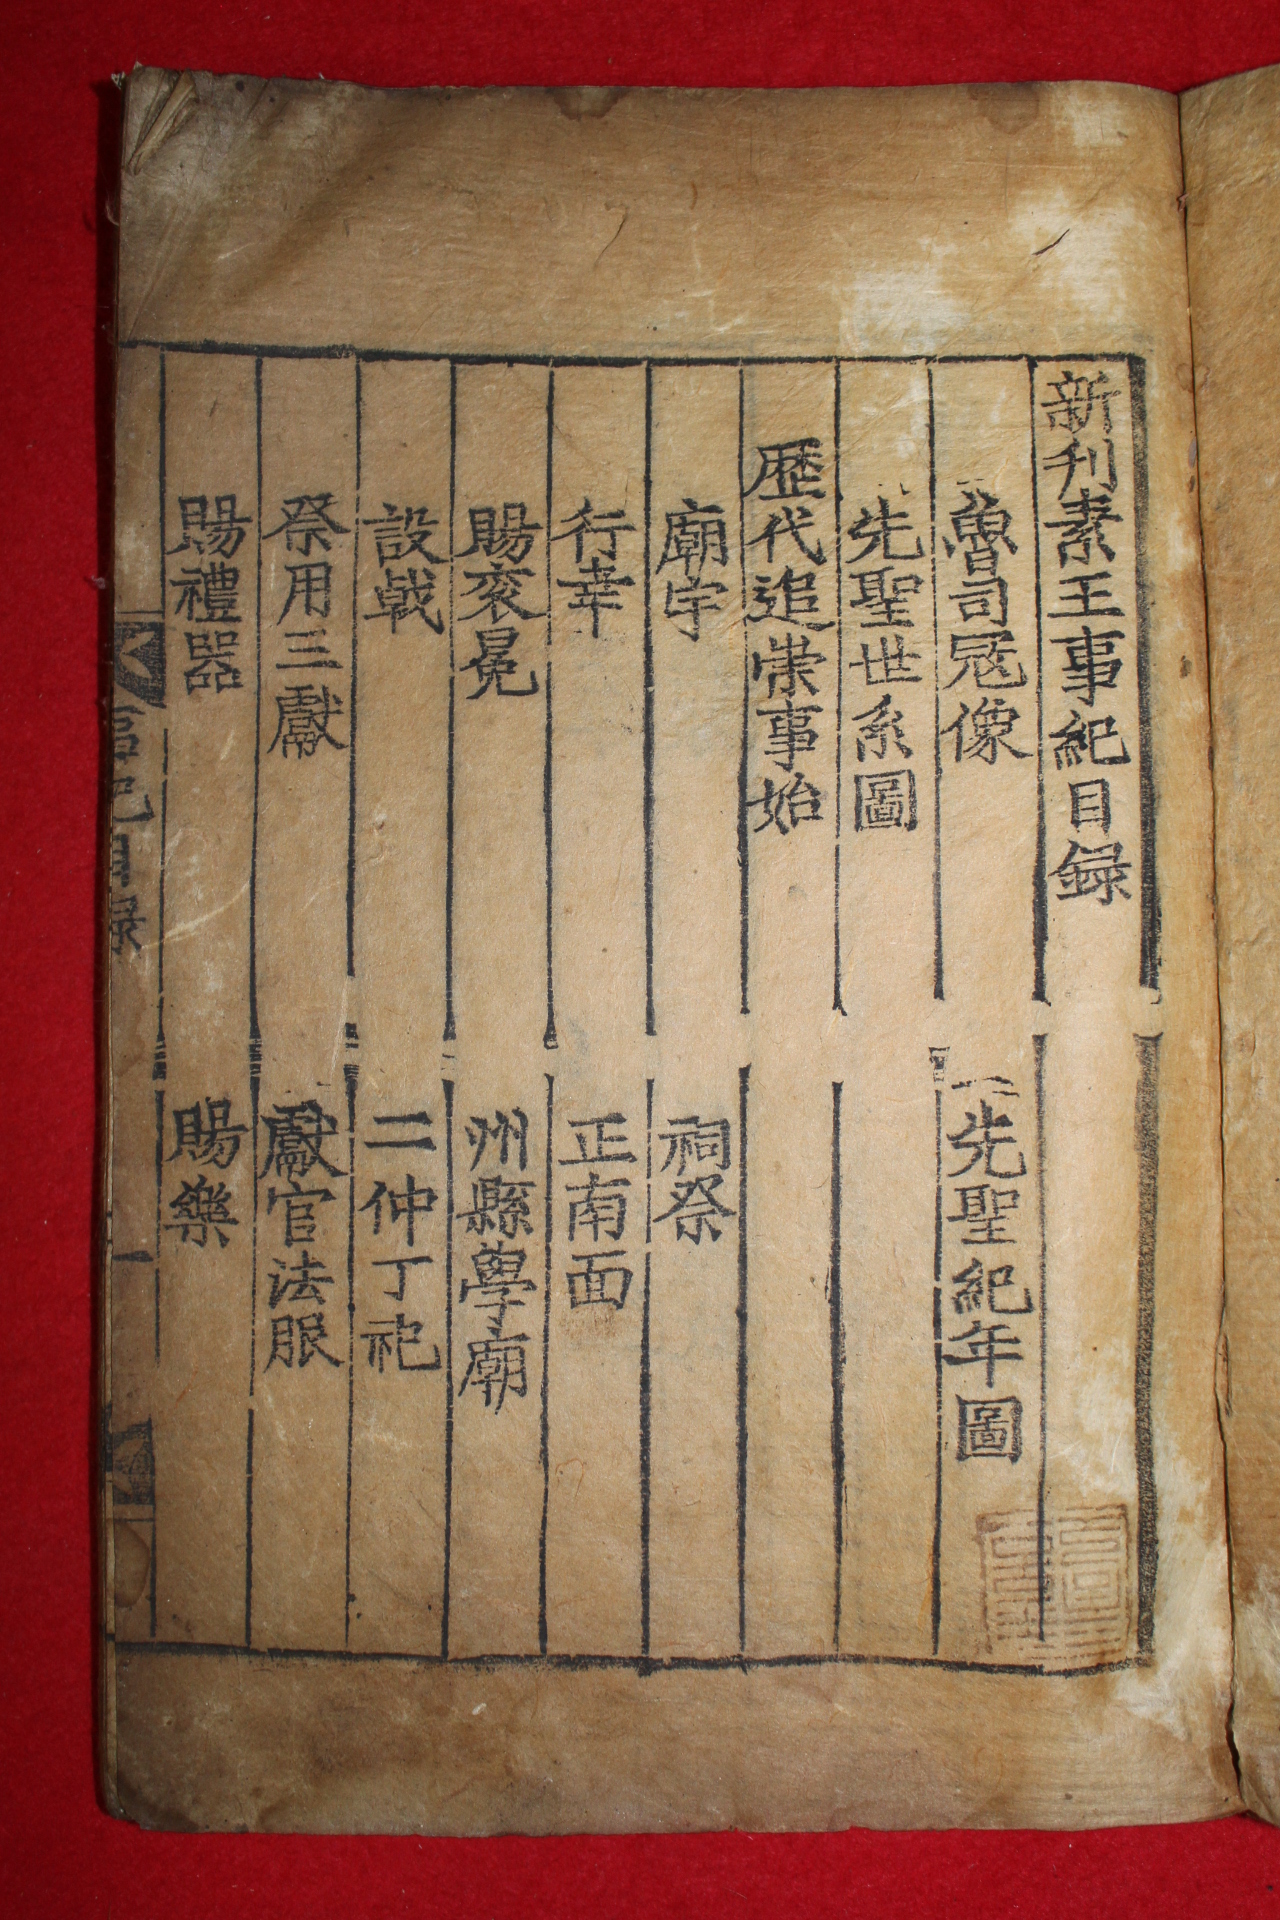 新刊素王事紀目録
魯司冦像　先聖紀年圖
先聖世系圖
歷代追崇事始
廟宇　祠祭
行幸　正南面
賜衮冕　州縣學廟
設戟　二仲丁祀
祭用三獻　獻官法服
賜禮器　賜樂
事紀目録　一